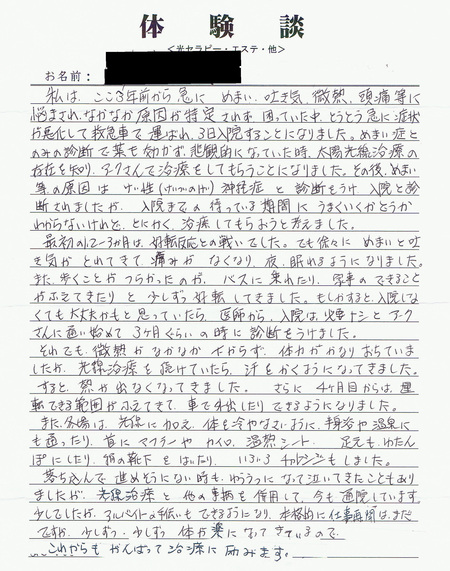 体験談
<光セラピー・エステ・他>
お名前：
私は、ここ3年前から急に めまい、吐き気、微熱、頭痛等に
悩まされ、なかなか原因が特定されず、困っていた中、とうとう急に症状
が悪化して救急車で運ばれ、3日入院することになりました。めまい症と
のみの診断で薬も効かず、悲観的になっていた時、太陽光線治療の
存在を知り、アークさんで治療をしてもらうことになりました。その後、めまい
等の原因は けい性(けいついのけい)神経症 と 診断をうけ 入院と診
断されましたが、入院までの待っている期間に うまくいくかどうか
わからないけれど、とにかく、治療してもらおうと考えました。
最初の1、2〜3ヶ月は、好転反応との戦いでした。でも徐々に めまいと吐
き気が とれてきて、痛みが なくなり、夜、眠れるようになりました。
また、歩くことが つらかったのが、バスに乗れたり、家事の できること
がふえてきたり と 少しずつ 好転 してきました。もしかすると、入院しな
くても大丈夫かもと思っていたら、医師から、入院は、必要ナシと アーク
さんに通い始めて 3ヶ月ぐらいの時に 診断をうけました。
それでも、微熱が なかなか 下がらず、体力がかなり おちていま
したが、光線治療を 続けていたら、汗をかくようになってきました。
すると、熱が出なくなってきました。 さらに 4ヶ月目からは、運
転できる範囲が ふえてきて、車で外出したり できるようになりました。
また、冬場は、光線に加え、体を冷やさないように、手浴や温泉に
も通ったり、首に マフラーや カイロ、温熱シート、 足元も、ゆたん
ぽにしたり、絹の靴下 をはいたり、いろいろ チャレンジもしました。
落ち込んで 進めそうにない時も、ゆううつに なって泣いてきたこともあり
ましたが、光線治療 と 他の 事柄 を 併用して、今も 通院しています。
少しでしたが、アルバイトの手伝いも できるようになり、本格的に仕事再開は、まだ
ですが、少しずつ、少しずつ 体が楽に なって きているので、
これからも がんばって治療に 励みます。